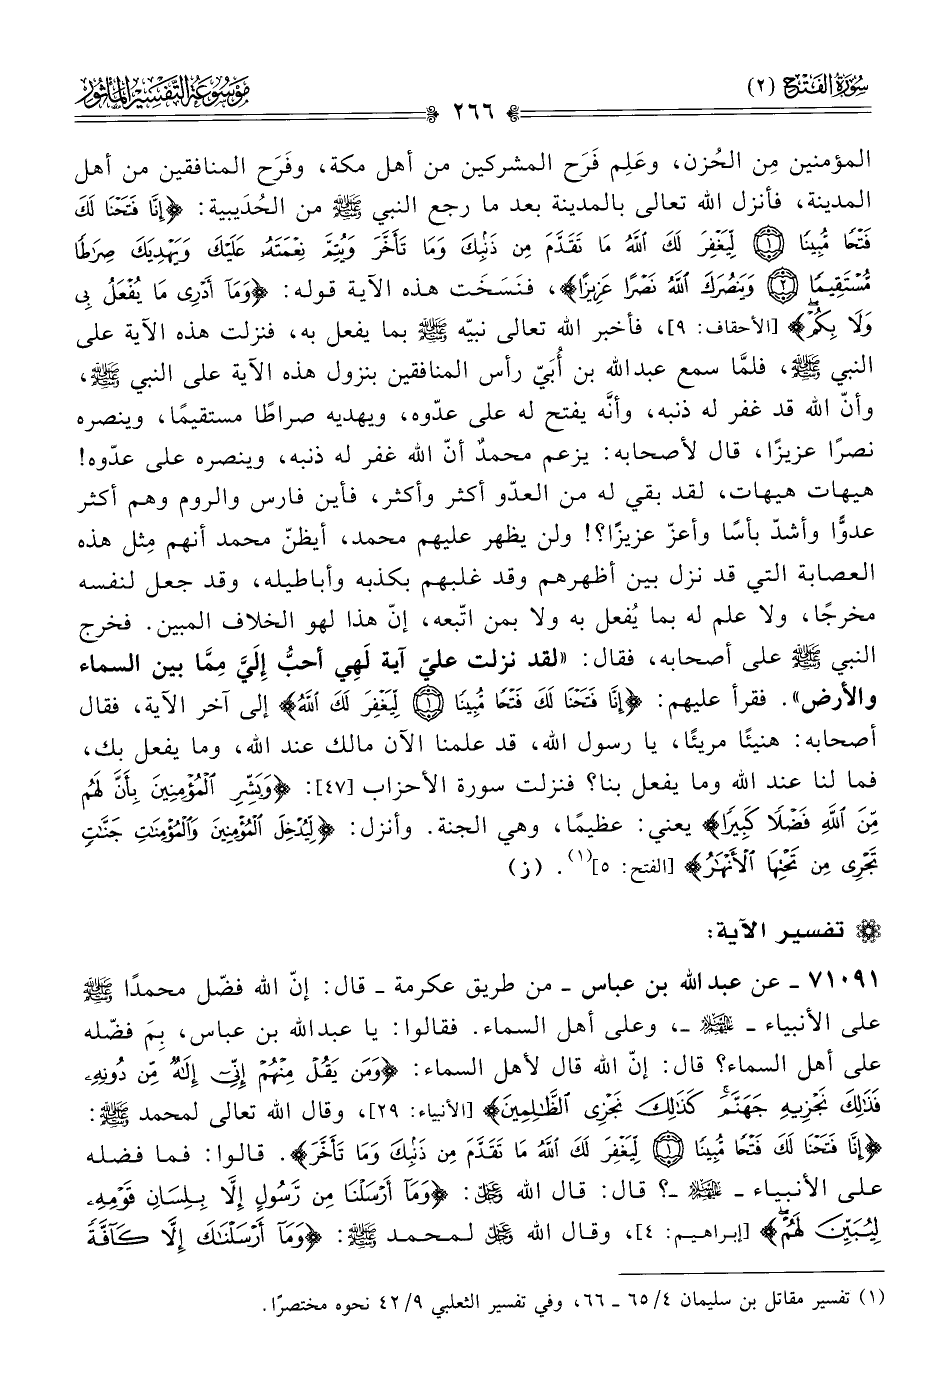 سُورَةُ الفَتْح (٢)
٢٦٦
مَوْسُوعَةُ التَّفْسِيرِ المَأْثُور
المؤمنين مِن الحُزن، وعَلِم فَرَح المشركين من أهل مكة، وفَرَح المنافقين من أهل
المدينة، فأنزل الله تعالى بالمدينة بعد ما رجع النبي ﷺ من الحُدَيبية: ﴿إِنَّا فَتَحْنَا لَكَ
فَتْحًا مُّبِينًا ۝١ لِّيَغْفِرَ لَكَ ٱللَّهُ مَا تَقَدَّمَ مِن ذَنۢبِكَ وَمَا تَأَخَّرَ وَيُتِمَّ نِعْمَتَهُۥ عَلَيْكَ وَيَهْدِيَكَ صِرَٰطًا
مُّسْتَقِيمًا ۝٢ وَيَنصُرَكَ ٱللَّهُ نَصْرًا عَزِيزًا﴾، فنَسَخَت هذه الآية قوله: ﴿وَمَآ أَدْرِى مَا يُفْعَلُ بِى
وَلَا بِكُمْ﴾ [الأحقاف: ٩]، فأخبر الله تعالى نبيّه ﷺ بما يفعل به، فنزلت هذه الآية على
النبي ﷺ، فلمَّا سمع عبدالله بن أُبَيّ رأس المنافقين بنزول هذه الآية على النبي ﷺ،
وأنّ الله قد غفر له ذنبه، وأنَّه يفتح له على عدّوه، ويهديه صراطًا مستقيمًا، وينصره
نصرًا عزيزًا، قال لأصحابه: يزعم محمدٌ أنّ الله غفر له ذنبه، وينصره على عدّوه!
هيهات هيهات، لقد بقي له من العدّو أكثر وأكثر، فأين فارس والروم وهم أكثر
عدوًّا وأشدّ بأسًا وأعزّ عزيزًا؟! ولن يظهر عليهم محمد، أيظنّ محمد أنهم مِثل هذه
العصابة التي قد نزل بين أظهرهم وقد غلبهم بكذبه وأباطيله، وقد جعل لنفسه
مخرجًا، ولا علم له بما يُفعل به ولا بمن اتّبعه، إنّ هذا لهو الخلاف المبين. فخرج
النبي ﷺ على أصحابه، فقال: «لقد نزلت عليّ آية لَهِي أحبُّ إِلَيَّ مِمَّا بين السماء
والأرض». فقرأ عليهم: ﴿إِنَّا فَتَحْنَا لَكَ فَتْحًا مُّبِينًا ۝١ لِّيَغْفِرَ لَكَ ٱللَّهُ﴾ إلى آخر الآية، فقال
أصحابه: هنيئًا مريئًا، يا رسول الله، قد علمنا الآن مالك عند الله، وما يفعل بك،
فما لنا عند الله وما يفعل بنا؟ فنزلت سورة الأحزاب [٤٧]: ﴿وَبَشِّرِ ٱلْمُؤْمِنِينَ بِأَنَّ لَهُم
مِّنَ ٱللَّهِ فَضْلًا كَبِيرًا﴾ يعني: عظيمًا، وهي الجنة. وأنزل: ﴿لِّيُدْخِلَ ٱلْمُؤْمِنِينَ وَٱلْمُؤْمِنَٰتِ جَنَّٰتٍ
تَجْرِى مِن تَحْتِهَا ٱلْأَنْهَٰرُ﴾ [الفتح: ٥](١). (ز)
تفسير الآية:
٧١٠٩١ ـ عن عبدالله بن عباس ـ من طريق عكرمة ـ قال: إنّ الله فضّل محمدًا ﷺ
على الأنبياء ـ عليهم السلام ـ، وعلى أهل السماء. فقالوا: يا عبدالله بن عباس، بِمَ فضّله
على أهل السماء؟ قال: إنّ الله قال لأهل السماء: ﴿وَمَن يَقُلْ مِنْهُمْ إِنِّىٓ إِلَٰهٌ مِّن دُونِهِۦ
فَذَٰلِكَ نَجْزِيهِ جَهَنَّمَ كَذَٰلِكَ نَجْزِى ٱلظَّٰلِمِينَ﴾ [الأنبياء: ٢٩]، وقال الله تعالى لمحمد ﷺ:
﴿إِنَّا فَتَحْنَا لَكَ فَتْحًا مُّبِينًا ۝١ لِّيَغْفِرَ لَكَ ٱللَّهُ مَا تَقَدَّمَ مِن ذَنۢبِكَ وَمَا تَأَخَّرَ﴾. قالوا: فما فضله
على الأنبياء ـ عليهم السلام ـ؟ قال: قال الله عز وجل: ﴿وَمَآ أَرْسَلْنَا مِن رَّسُولٍ إِلَّا بِلِسَانِ قَوْمِهِۦ
لِيُبَيِّنَ لَهُمْ﴾ [إبراهيم: ٤]، وقال الله عز وجل لمحمد ﷺ: ﴿وَمَآ أَرْسَلْنَٰكَ إِلَّا كَآفَّةً
(١) تفسير مقاتل بن سليمان ٤/ ٦٥ ـ ٦٦، وفي تفسير الثعلبي ٩/ ٤٢ نحوه مختصرًا.